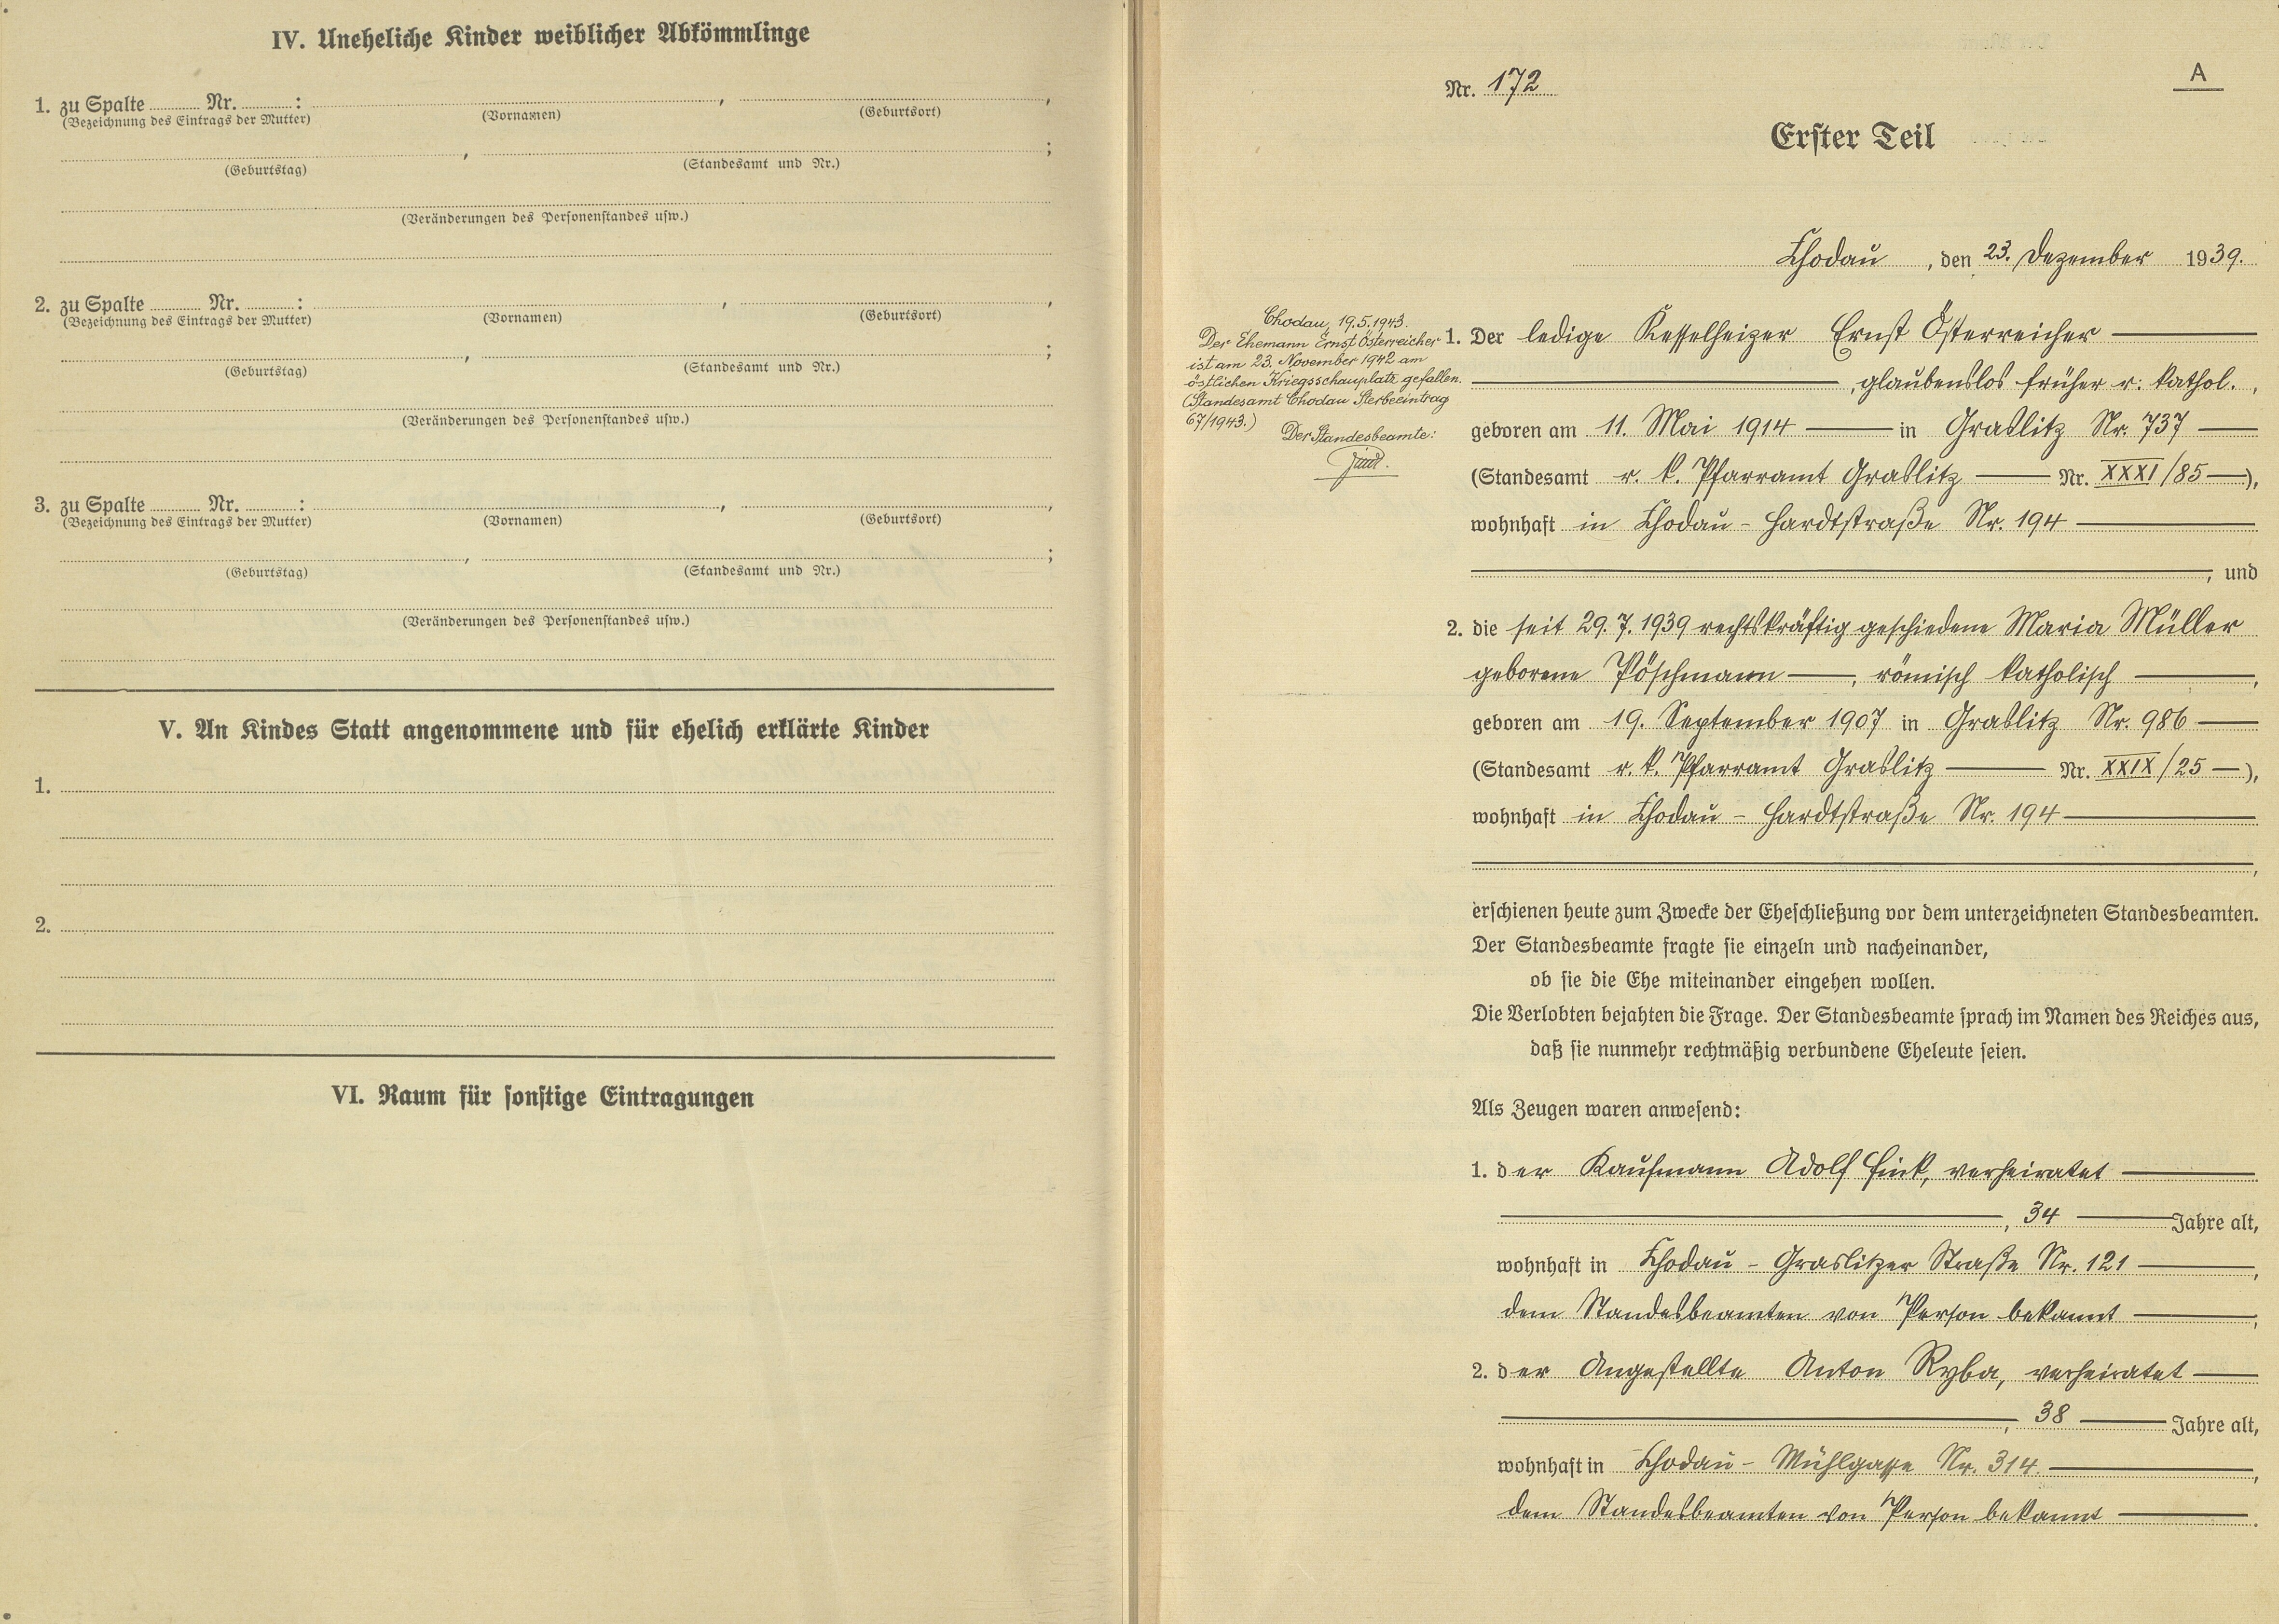 IV. Uneheliche Kinder weiblicher Abkömmlinge
1. zu Spalte ........ Nr. ........ : ........ , ........ ,
(Bezeichnung des Eintrags der Mutter) (Vornamen) (Geburtsort)
........ , ........ ;
(Geburtstag) (Standesamt und Nr.)
(Veränderungen des Personenstandes usw.)
2. zu Spalte ........ Nr. ........ : ........ , ........ ,
(Bezeichnung des Eintrags der Mutter) (Vornamen) (Geburtsort)
........ , ........ ;
(Geburtstag) (Standesamt und Nr.)
(Veränderungen des Personenstandes usw.)
3. zu Spalte ........ Nr. ........ : ........ , ........ ,
(Bezeichnung des Eintrags der Mutter) (Vornamen) (Geburtsort)
........ , ........ ;
(Geburtstag) (Standesamt und Nr.)
(Veränderungen des Personenstandes usw.)
V. An Kindes Statt angenommene und für ehelich erklärte Kinder
1.
2.
VI. Raum für sonstige Eintragungen
A
Nr. 172
Erster Teil
Chodau, den 23. Dezember 1939.
Chodau, 19.5.1943.
Der Ehemann Ernst Österreicher
ist am 23. November 1942 am
östlichen Kriegsschauplatz gefallen.
(Standesamt Chodau Sterbeeintrag
67/1943.)
Der Standesbeamte:
1. Der ledige Kesselheizer Ernst Österreicher
, glaubenslos früher r. kathol. ,
geboren am 11. Mai 1914 in Graslitz Nr. 737
(Standesamt r. k. Pfarramt Graslitz Nr. XXXI/85),
wohnhaft in Chodau - Hardtstraße Nr. 194
, und
2. die seit 29.7.1939 rechtskräftig geschiedene Maria Müller
geborene Pöschmann, römisch katholisch ,
geboren am 19. September 1907 in Graslitz Nr. 986
(Standesamt r. k. Pfarramt Graslitz Nr. XXIX/25),
wohnhaft in Chodau - Hardtstraße Nr. 194
,
erschienen heute zum Zwecke der Eheschließung vor dem unterzeichneten Standesbeamten.
Der Standesbeamte fragte sie einzeln und nacheinander,
ob sie die Ehe miteinander eingehen wollen.
Die Verlobten bejahten die Frage. Der Standesbeamte sprach im Namen des Reiches aus,
daß sie nunmehr rechtmäßig verbundene Eheleute seien.
Als Zeugen waren anwesend:
1. der Kaufmann Adolf Fink, verheiratet
, 34 Jahre alt,
wohnhaft in Chodau - Graslitzer Straße Nr. 121 ,
dem Standesbeamten von Person bekannt ,
2. der Angestellte Anton Ryba, verheiratet
, 38 Jahre alt,
wohnhaft in Chodau - Mühlgasse Nr. 314. ,
dem Standesbeamten von Person bekannt .